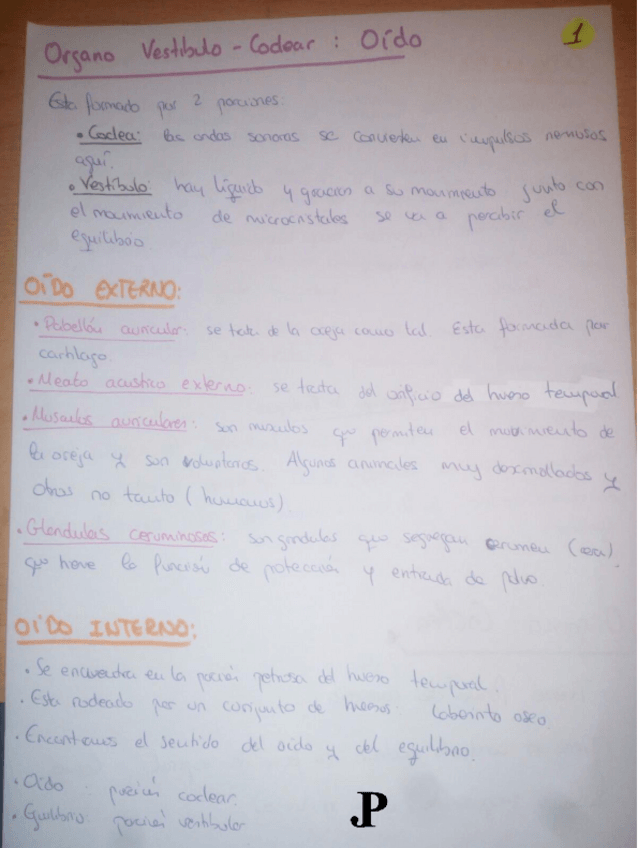 Organo Vestíbulo - Coclear : Oído
1
Esta formado por 2 porciones:
• Coclea: las ondas sonoras se convierten en impulsos nerviosos
aquí.
• Vestíbulo: hay líquido y gracias a su movimiento junto con
el movimiento de microcristales se va a percibir el
equilibrio
OÍDO EXTERNO:
• Pabellón auricular: se trata de la oreja como tal. Esta formada por
cartílago.
• Meato acustico externo: se trata del orificio del hueso temporal
• Musculos auriculares: son musculos que permiten el movimiento de
la oreja y son voluntarios. Algunos animales muy desarrollados y
otros no tanto (humanos)
• Glandulas ceruminosas: son glandulas que segregan cerumen (cera).
que tiene la función de protección y entrada de polvo.
OIDO INTERNO:
• Se encuentra en la porción petrosa del hueso temporal.
• Esta rodeado por un conjunto de huesos: Laberinto oseo
• Encontramos el sentido del oido y del equilibrio.
• Oido : porción coclear.
• Equilibrio: porción vestibular
JP